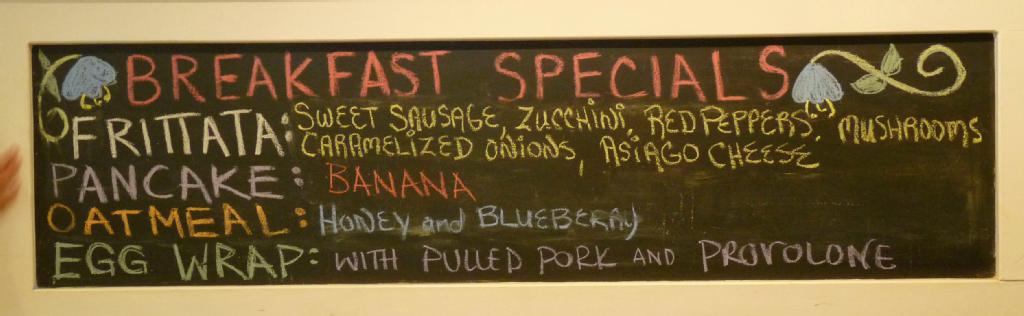 BREAKFAST SPECIALS
FRITTATA: SWEET SAUSAGE, ZUCCHINI, RED PEPPERS, MUSHROOMS
CARAMELIZED ONIONS, ASIAGO CHEESE
PANCAKE: BANANA
OATMEAL: HONEY and BLUEBERRY
EGG WRAP: WITH PULLED PORK AND PROVOLONE